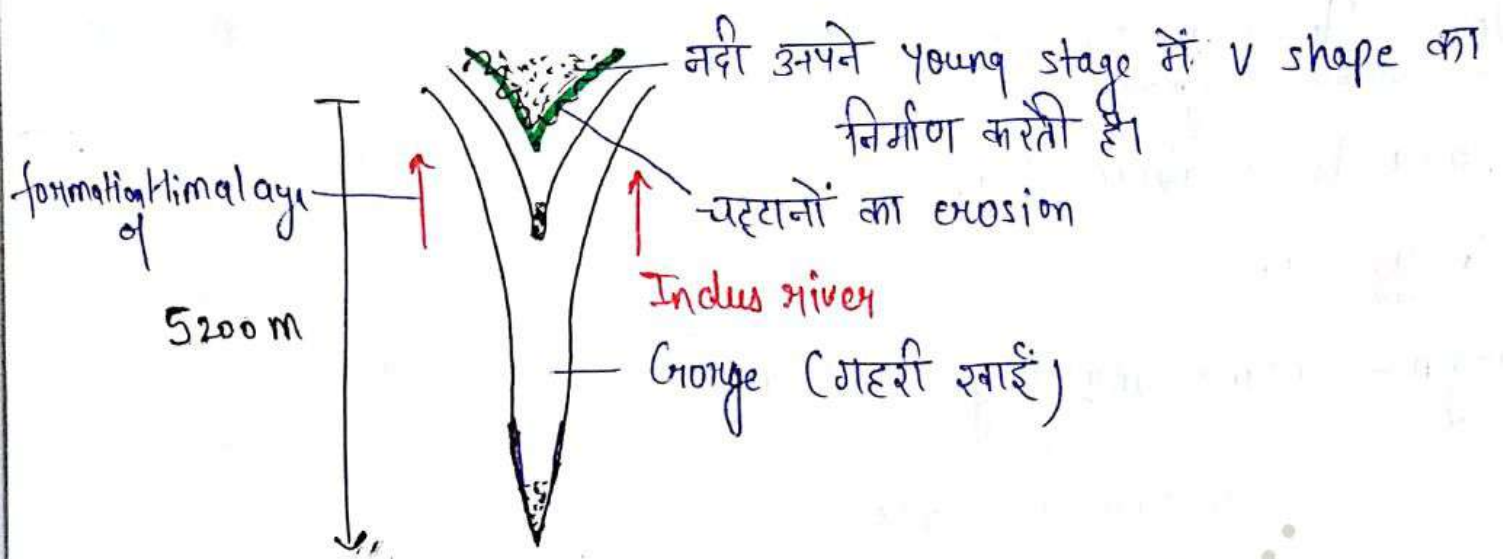 नदी अपने young stage में V shape का
निर्माण करती है।
formation Himalaya
of
चट्टानों का erosion
Indus river
5200 m
Gorge (गहरी खाई)